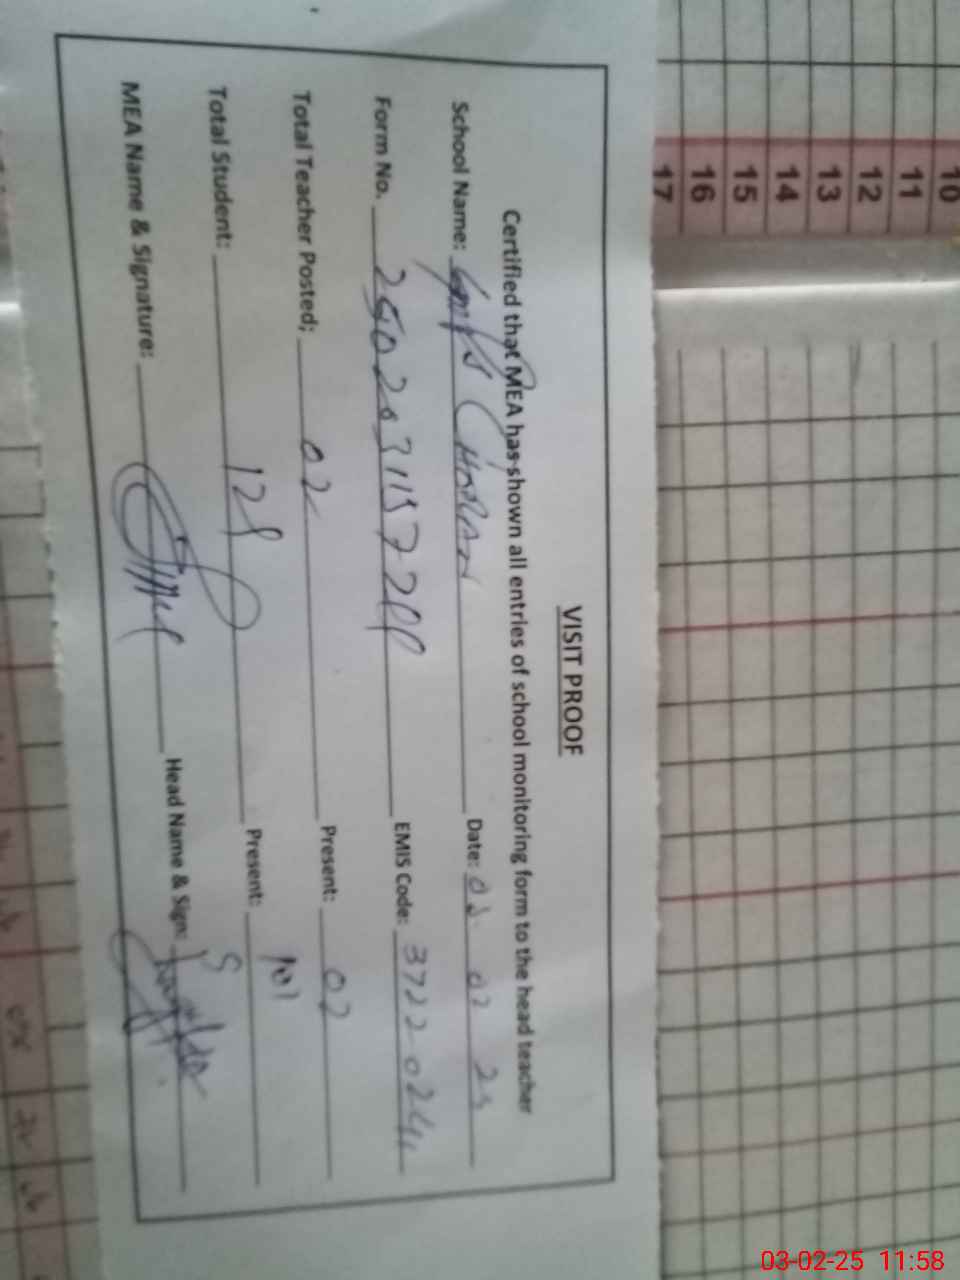 VISIT PROOF
Certified that MEA has shown all entries of school monitoring form to the head teacher
School Name: Date: 03 02 25
Form No. EMIS Code: 37220244
Total Teacher Posted; 02 Present: 02
Total Student: 128 Present: 101
MEA Name & Signature: Head Name & Sign:
10
11
12
13
14
15
16
17
03-02-25 11:58